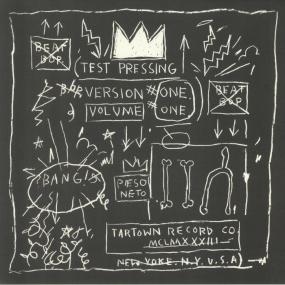 BEAT
BOP
TEST PRESSING
VERSION #ONE
VOLUME #ONE
BEAT
BOP
!BANG!
PESO
NETO
TARTOWN RECORD CO
MCLMXXXIII
NEW YORK N.Y. U.S.A